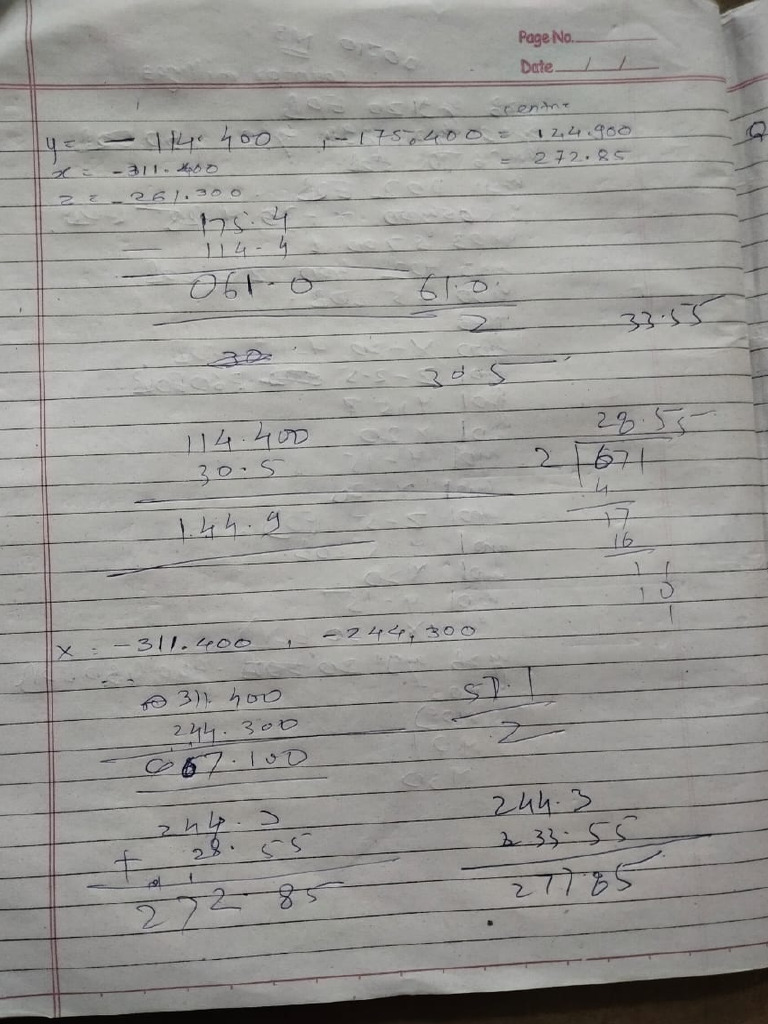 Page No.
Date / /
y = - 114.400 , -175.400 = 124.900
x = -311.400 = 272.85
z = -261.300
175.4
- 114.4
061.0 61.0
2 33.55
30
30.5
28.55
114.400 2 671
30.5 4
17
144.9 16
11
10
1
x = -311.400 , -244,300
311.400 57.1
244.300 2
067.100
244.3 244.3
+ 28.55 33.55
272.85 277.85